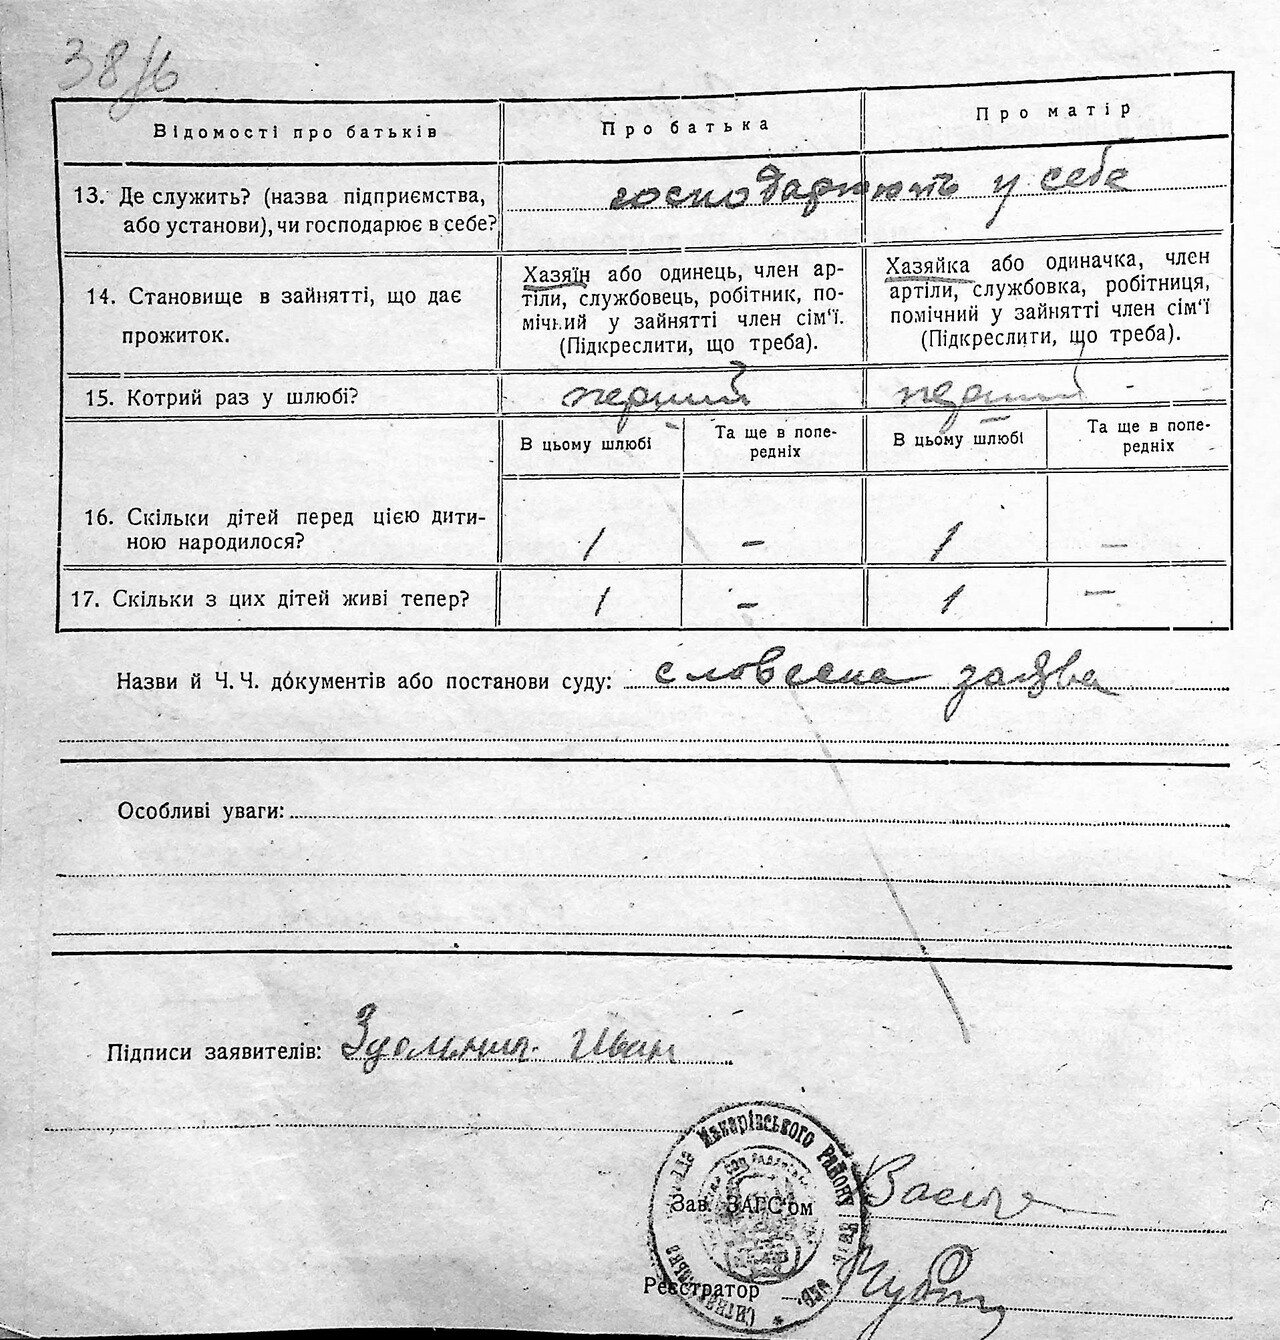 38/6
Відомості про батьків
Про батька
Про матір
13. Де служить? (назва підприємства,
або установи), чи господарює в себе?
господарюють у себе
14. Становище в зайнятті, що дає
прожиток.
Хазяїн або одинець, член ар-
тіли, службовець, робітник, по-
мічний у зайнятті член сім'ї.
(Підкреслити, що треба).
Хазяйка або одиначка, член
артіли, службовка, робітниця,
помічний у зайнятті член сім'ї
(Підкреслити, що треба).
15. Котрий раз у шлюбі?
перший
перший
В цьому шлюбі
Та ще в попе-
редніх
В цьому шлюбі
Та ще в попе-
редніх
16. Скільки дітей перед цією дити-
ною народилося?
1 – 1 –
17. Скільки з цих дітей живі тепер?
1 – 1 –
Назви й Ч. Ч. документів або постанови суду: словесна заява
Особливі уваги:
Підписи заявителів: Іван
Макарівського Району
Зав. ЗАГС'ом
Реєстратор